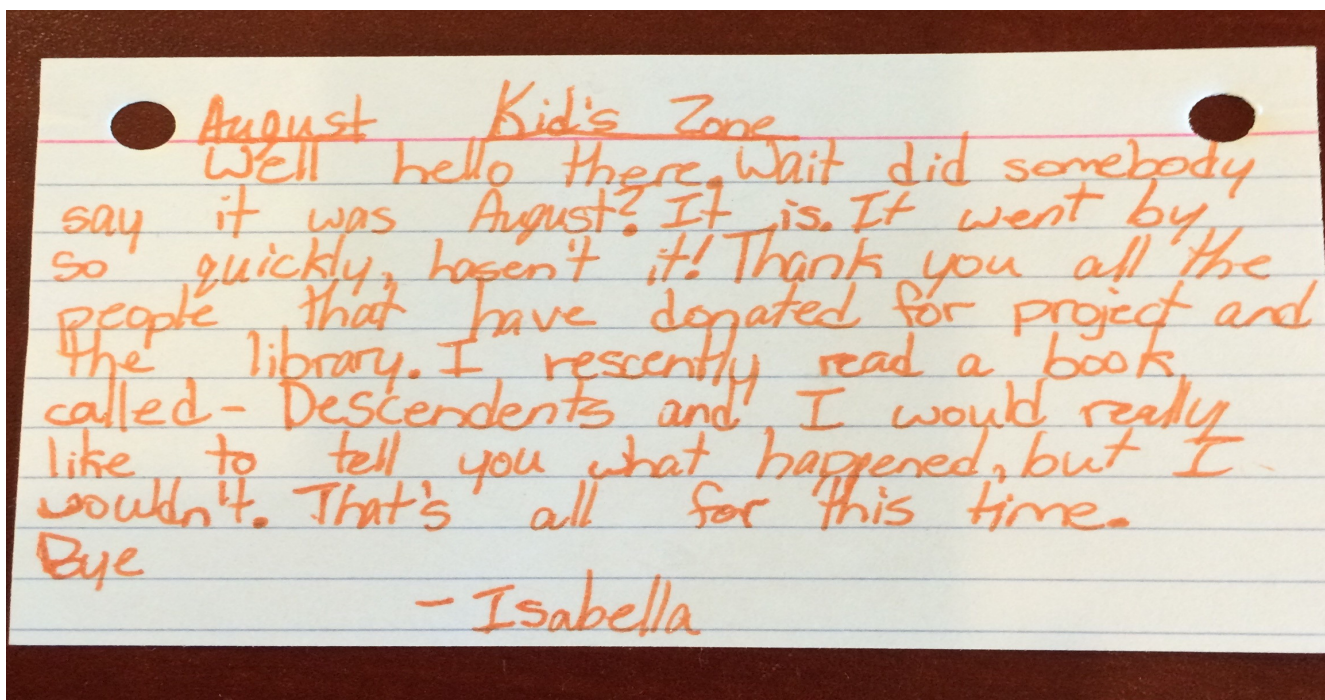 August Kid's Zone
Well hello there. Wait did somebody
say it was August? It is. It went by
so quickly, hasen't it! Thank you all the
people that have donated for project and
the library. I rescently read a book
called- Descendents and I would really
like to tell you what happened, but I
wouldn't. That's all for this time.
Bye
- Isabella